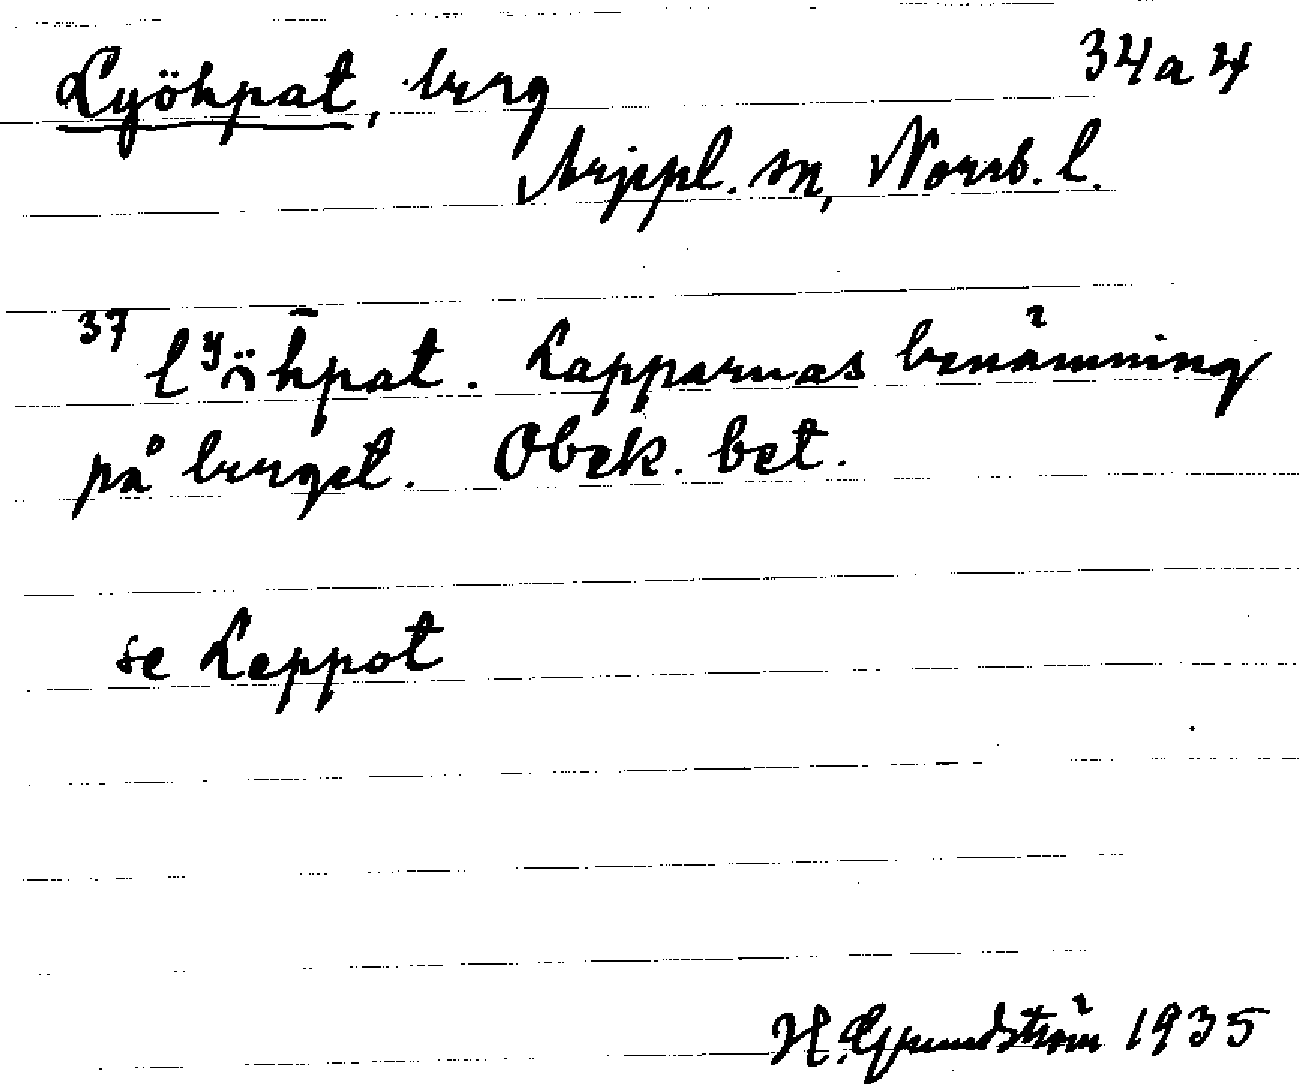 Lyöhpat, berg 34a4
Arjepl. sn, Norrb. l.
37 lʸöh̄pat. Lapparnas benämning
på berget. Obek. bet.
se Leppot
H. Grundström 1935